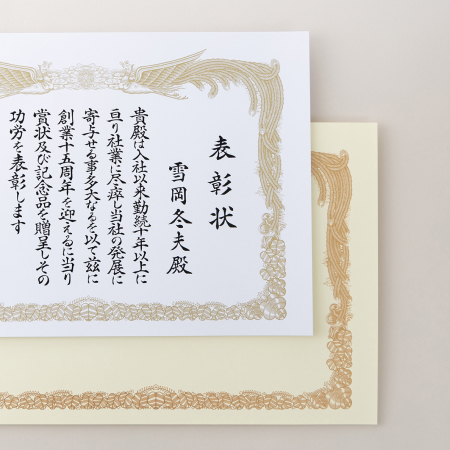 表彰状
雪岡冬夫殿
貴殿は入社以来勤続十年以上に
亘り社業に尽瘁し当社の発展に
寄与せる事多大なるを以て茲に
創業十五周年を迎えるに当り
賞状及び記念品を贈呈しその
功労を表彰します